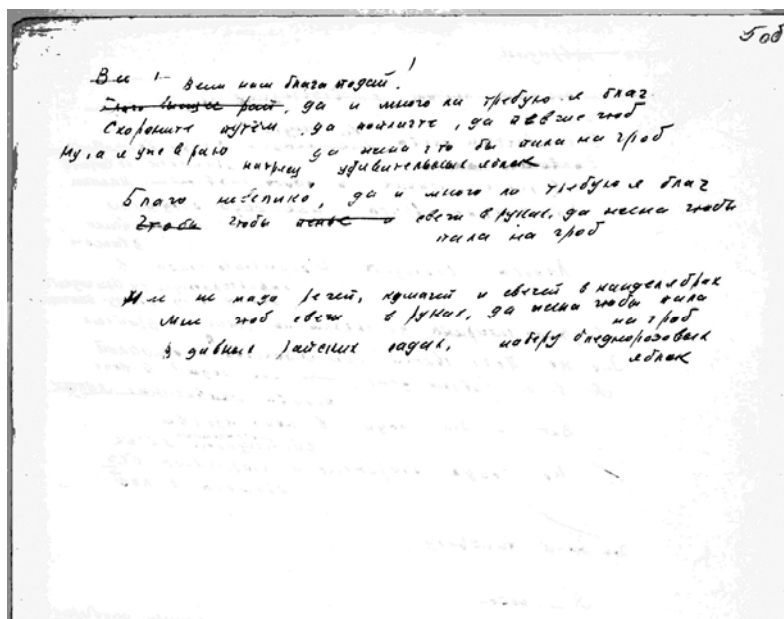 50об
Вы :- Всем нам блага подай!
Благо высшее рай, да и много ли требую я благ
Схороните путём, да поплачте, да и вже чтоб
Ну, а я уже в раю да жена что бы пала на гроб
натрещ удивительных яблок
Благо невелико, да и много ли требую я благ
Чтобы чтобы пенье и свечи в руках, да жена чтобы
пала на гроб
Мне не надо речей, кумачей и свечей в канделябрах
Мне чтоб свечи в руках, да жена чтобы пала
на гроб
В дивных райских садах, наберу бледнорозовых
яблок